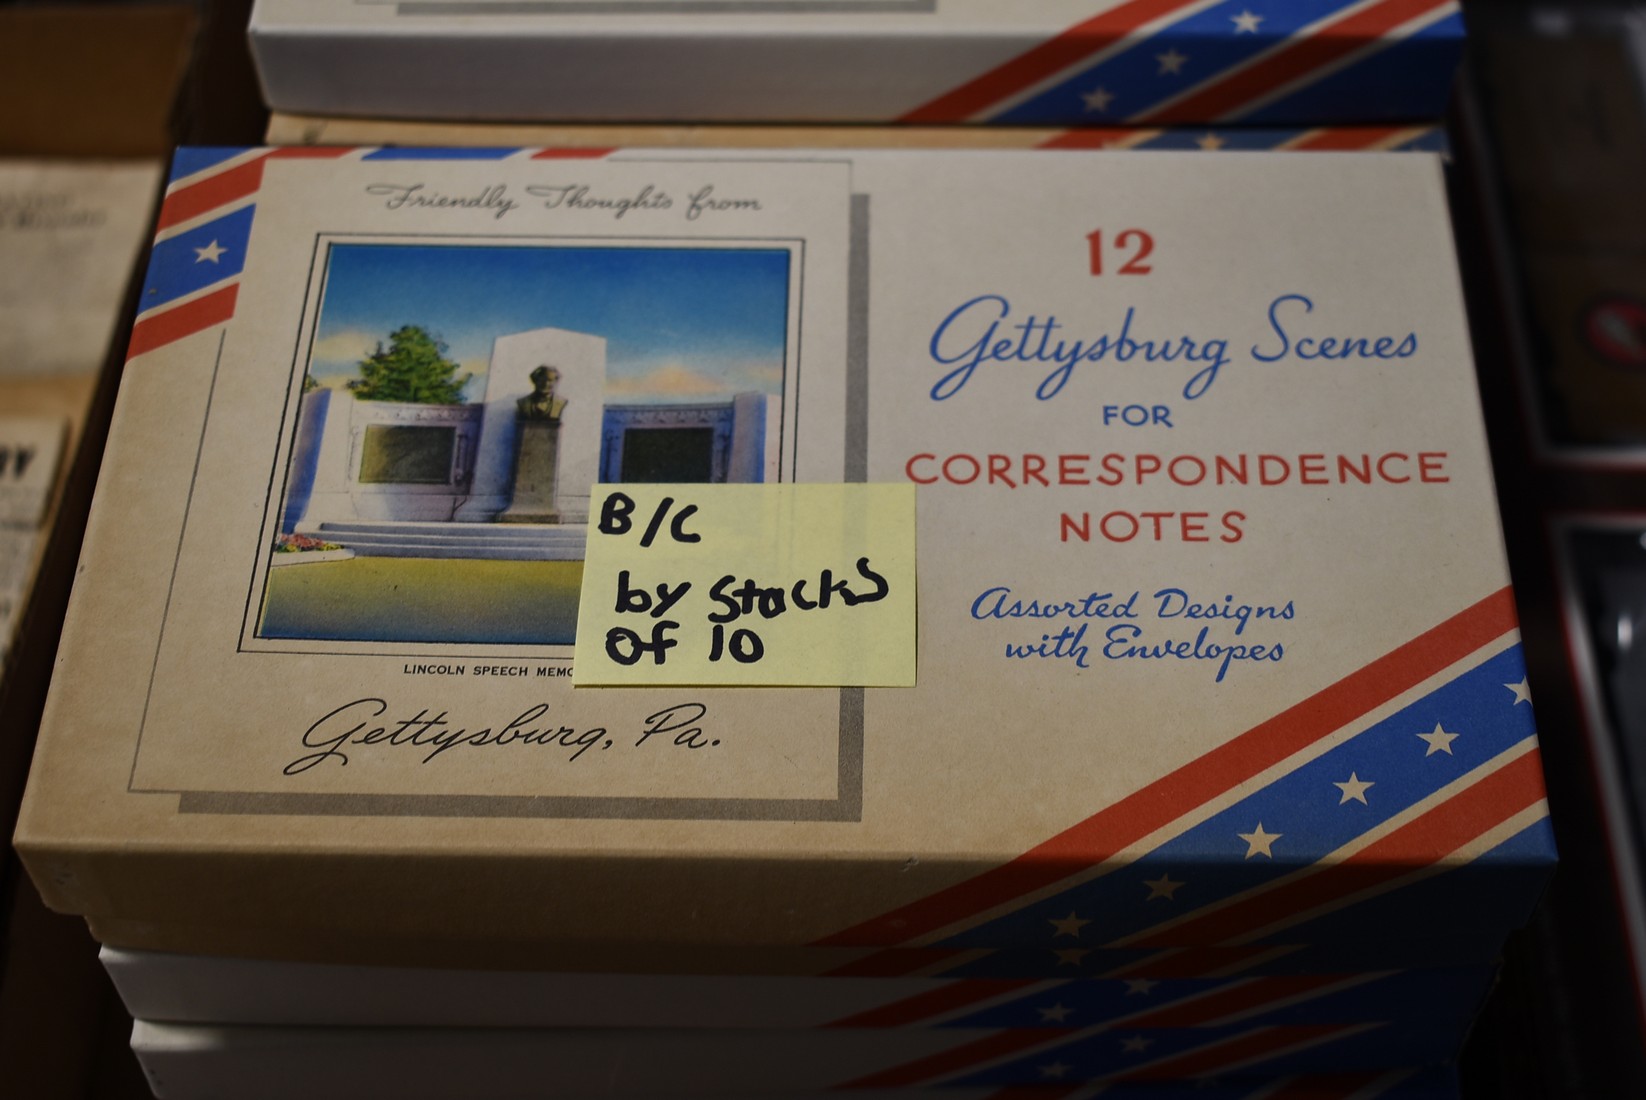 Friendly Thoughts from
LINCOLN SPEECH
Gettysburg, Pa.
12
Gettysburg Scenes
FOR
CORRESPONDENCE
NOTES
Assorted Designs
with Envelopes
B/C
by stacks
of 10